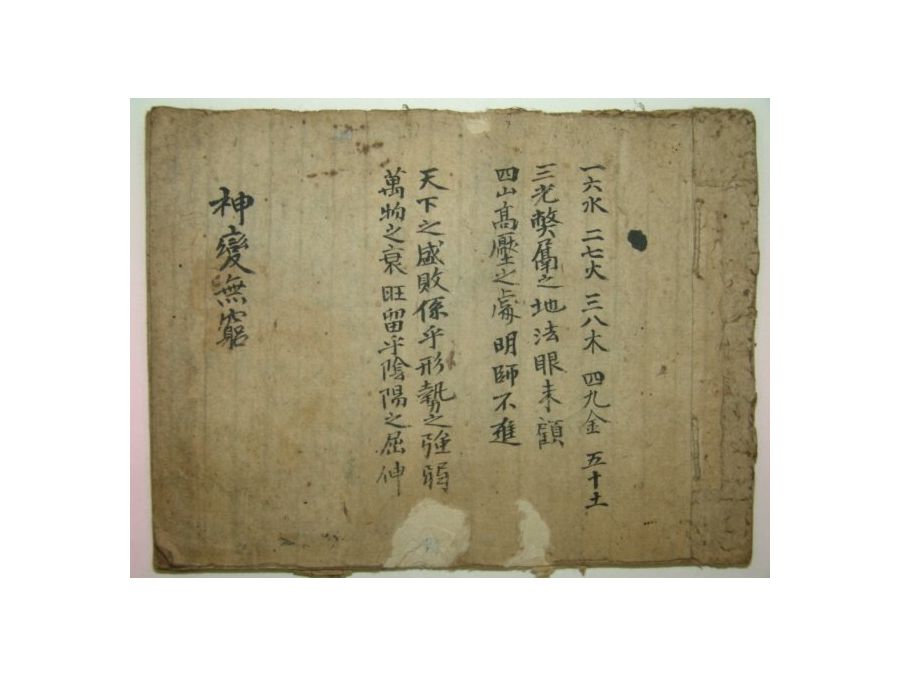 一六水 二七火 三八木 四九金 五十土
三光弊屬之地法眼未顧
四山高壓之處明師不進
天下之盛敗係乎形勢之強弱
萬物之衰旺留乎陰陽之屈伸
神變無窮